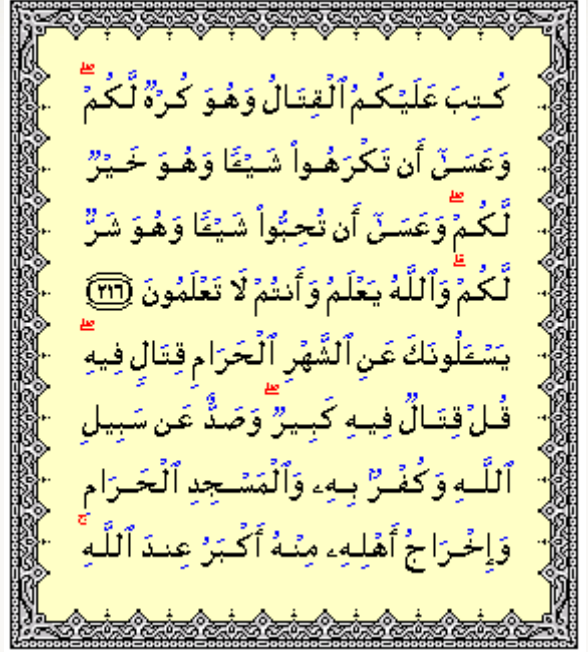 كُتِبَ عَلَيْكُمُ ٱلْقِتَالُ وَهُوَ كُرْهٌ لَّكُمْ ۖ
وَعَسَىٰٓ أَن تَكْرَهُوا۟ شَيْـًٔا وَهُوَ خَيْرٌ
لَّكُمْ ۖ وَعَسَىٰٓ أَن تُحِبُّوا۟ شَيْـًٔا وَهُوَ شَرٌّ
لَّكُمْ ۗ وَٱللَّهُ يَعْلَمُ وَأَنتُمْ لَا تَعْلَمُونَ ٢١٦
يَسْـَٔلُونَكَ عَنِ ٱلشَّهْرِ ٱلْحَرَامِ قِتَالٍ فِيهِ ۖ
قُلْ قِتَالٌ فِيهِ كَبِيرٌ ۖ وَصَدٌّ عَن سَبِيلِ
ٱللَّهِ وَكُفْرٌۢ بِهِۦ وَٱلْمَسْجِدِ ٱلْحَرَامِ
وَإِخْرَاجُ أَهْلِهِۦ مِنْهُ أَكْبَرُ عِندَ ٱللَّهِ ۚ